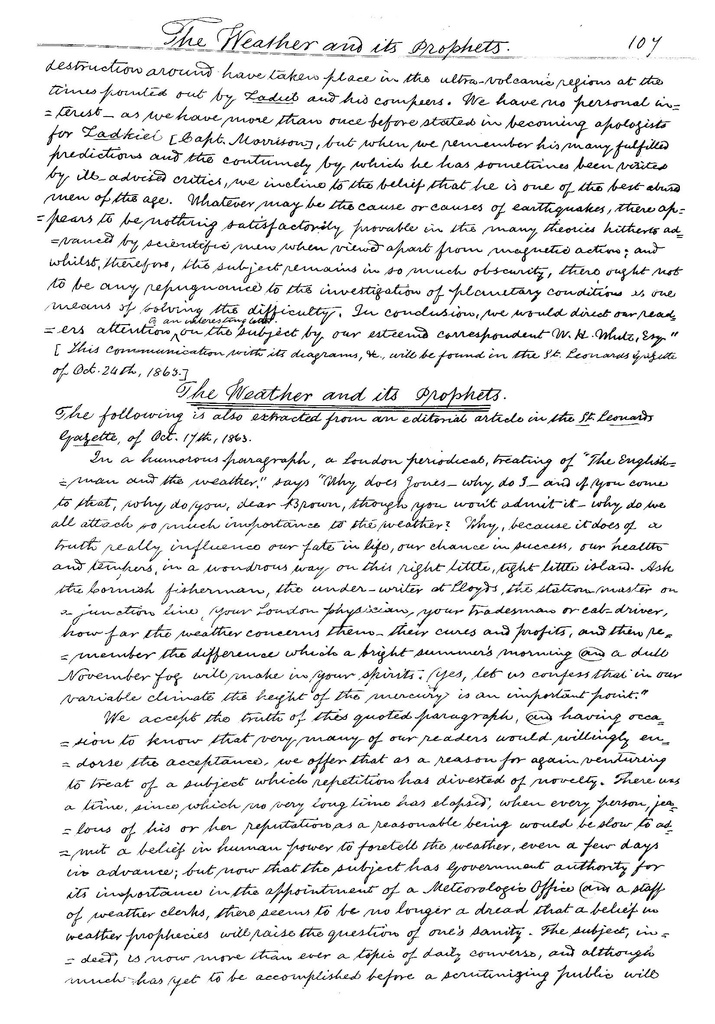 The Weather and its Prophets. 107
destruction around have taken place in the ultra-volcanic regions at the
times pointed out by Zadiel and his compeers. We have no personal in=
=terest – as we have more than once before stated in becoming apologists
for Zadkiel [Capt. Morrison], but when we remember his many fulfilled
predictions and the contumely by which he has sometimes been visited
by ill-advised critics, we incline to the belief that he is one of the best abused
men of the age. Whatever may be the cause or causes of earthquakes, there ap=
=pears to be nothing satisfactorily provable in the many theories hitherto ad=
=vanced by scientific men when viewed apart from magnetic action; and
whilst, therefore, the subject remains in so much obscurity, there ought not
to be any repugnance to the investigation of planetary conditions as one
means of solving the difficulty. In conclusion, we would direct our read=
to an interesting letter
=ers attention, on the subject by our esteemd correspondent W. H. White, Esq."
[This communication with its diagrams, &c, will be found in the St. Leonards Gazette
of Oct. 24th, 1863.]
The Weather and its Prophets.
The following is also extracted from an editorial article in the St. Leonards
Gazette, of Oct. 17th, 1863.
In a humorous paragraph, a London periodical, treating of "The English=
=man and the weather," says "Why does Jones – why do I – and if you come
to that, why do you, dear Brown, though you won't admit it – why do we
all attach so much importance to the weather? Why, because it does of a
truth really influence our fate in life, our chance in success, our health
and tempers, in a wondrous way on this right little, tight little island. Ask
the Cornish fisherman, the under-writer at Lloyds, the station-master on
a junction line, your London physician, your tradesman or cab-driver,
how far the weather concerns them – their cures and profits, and then re=
=member the difference which a bright summer's morning and a dull
November fog will make in your spirits. Yes, let us confess that in our
variable climate the height of the mercury is an important point."
We accept the truth of this quoted paragraph, and having occa=
=sion to know that very many of our readers would willingly en=
=dorse the acceptance, we offer that as a reason for again venturing
to treat of a subject which repetition has divested of novelty. There was
a time, since which no very long time has elapsed, when every person, jea=
=lous of his or her reputation as a reasonable being would be slow to ad=
=mit a belief in human power to foretell the weather, even a few days
in advance; but now that the subject has Government authority for
its importance in the appointment of a Meteorologic Office and a staff
of weather clerks, there seems to be no longer a dread that a belief in
weather prophecies will raise the question of one's sanity. The subject, in=
=deed, is now more than ever a topic of daily converse, and although
much has yet to be accomplished before a scrutinizing public will